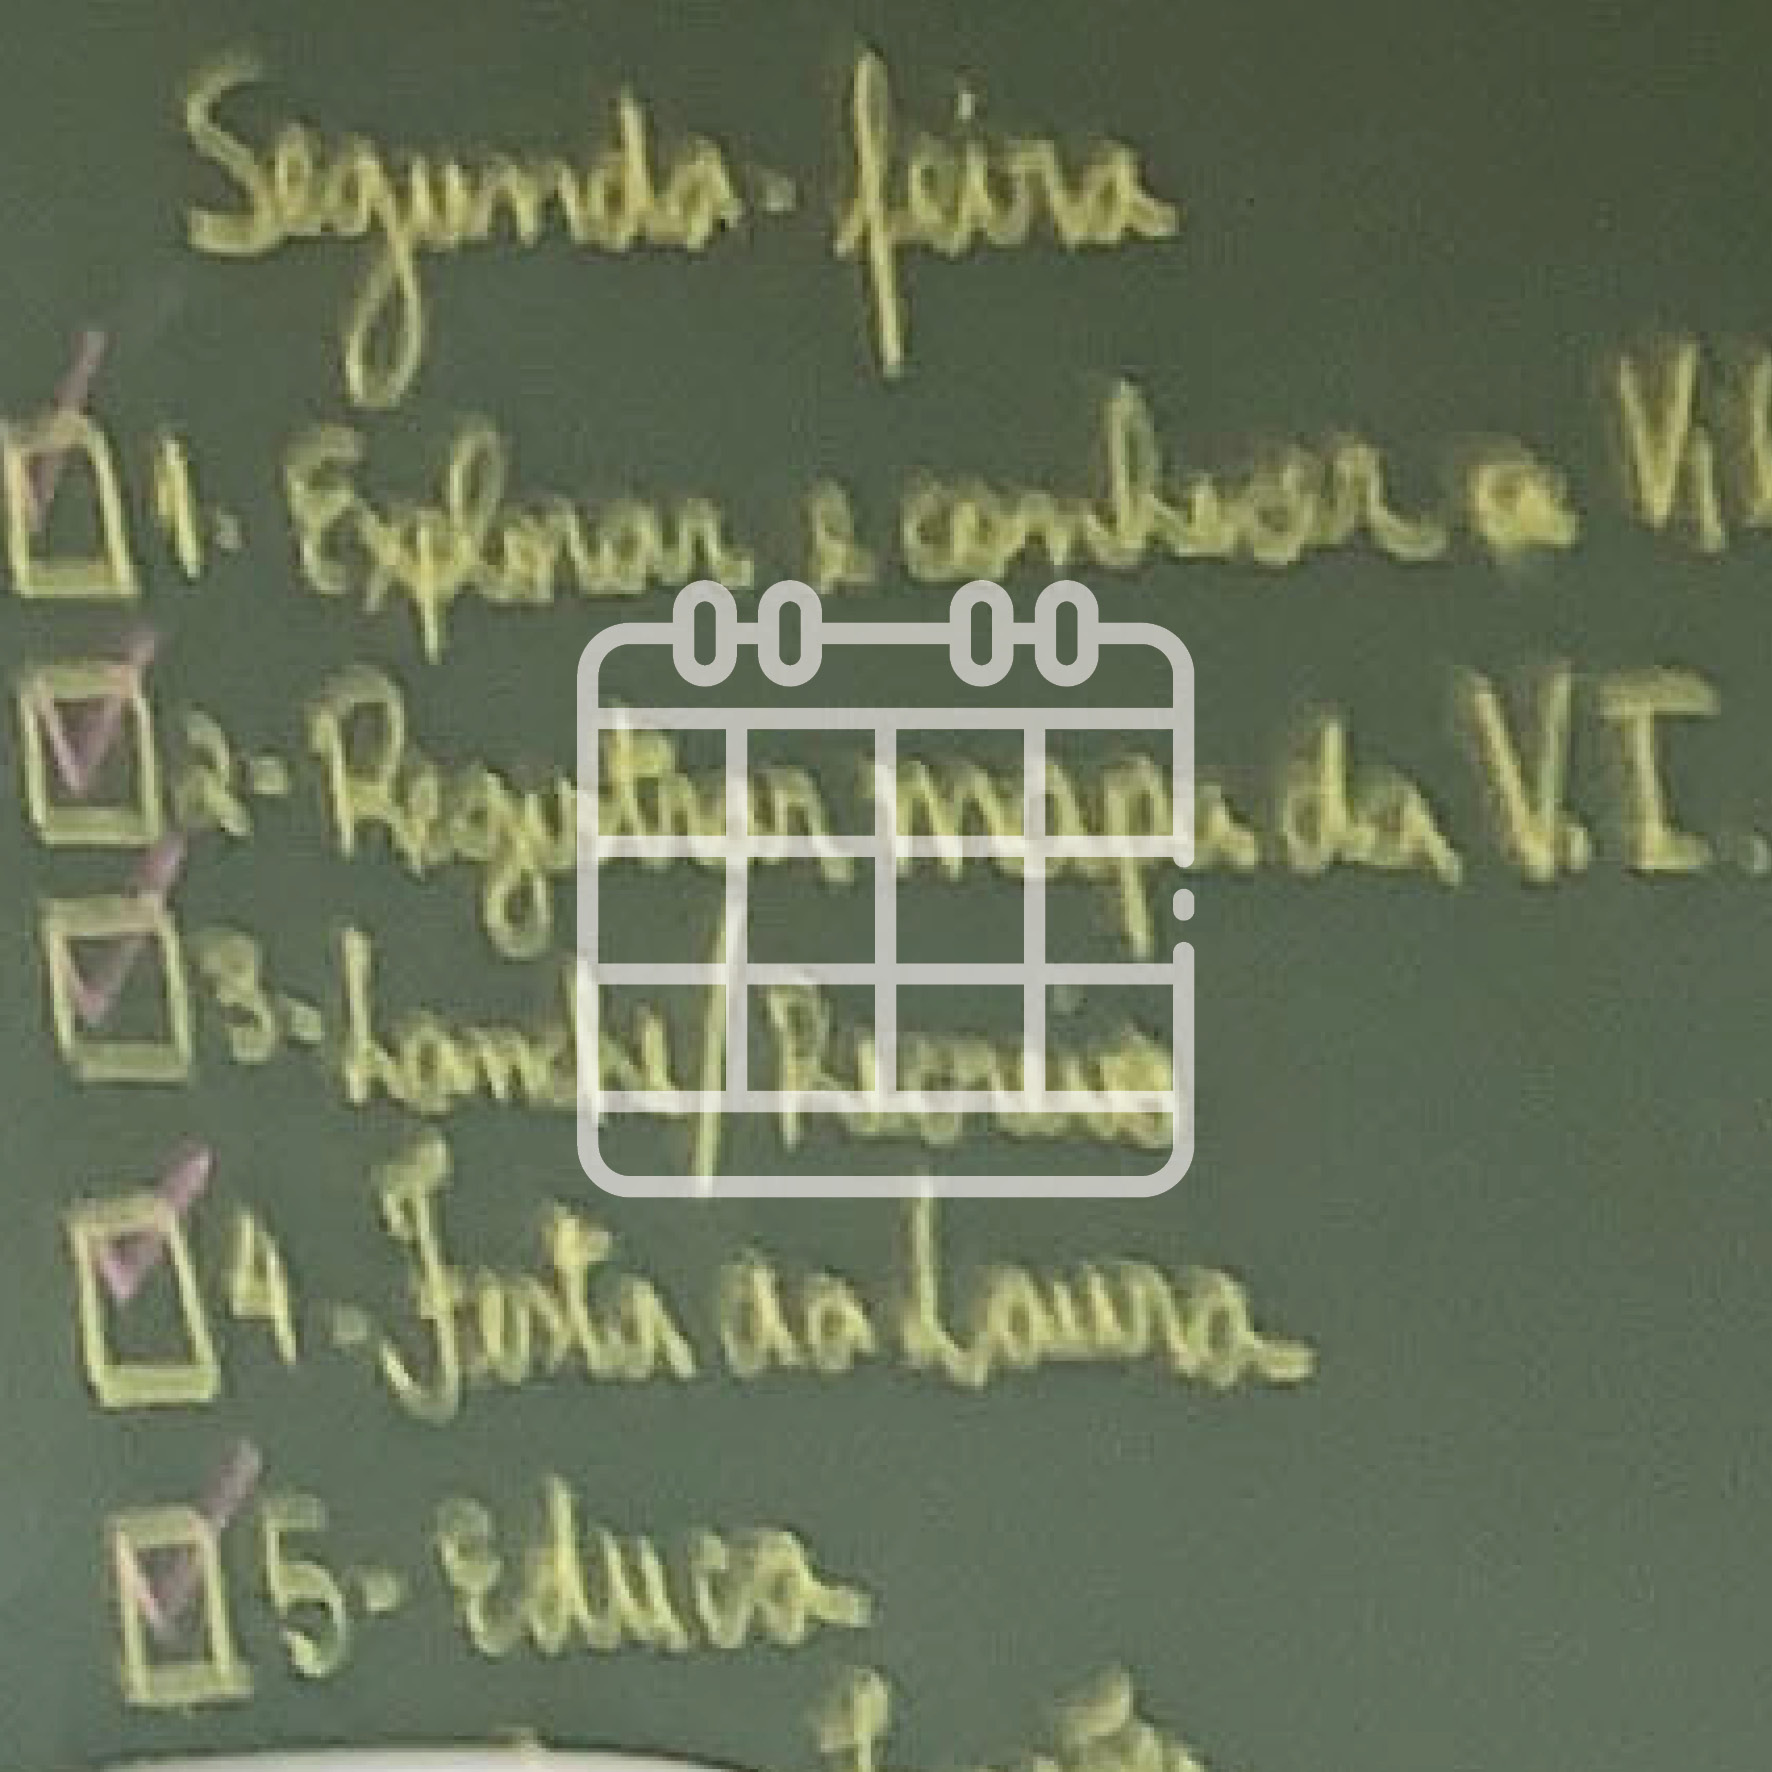 Segunda-feira
1. Explorar e conhecer a V.I
2- Registrar mapa da V.I.
3- Lanche/Recreio
4-Festa da Laura
5- Educa